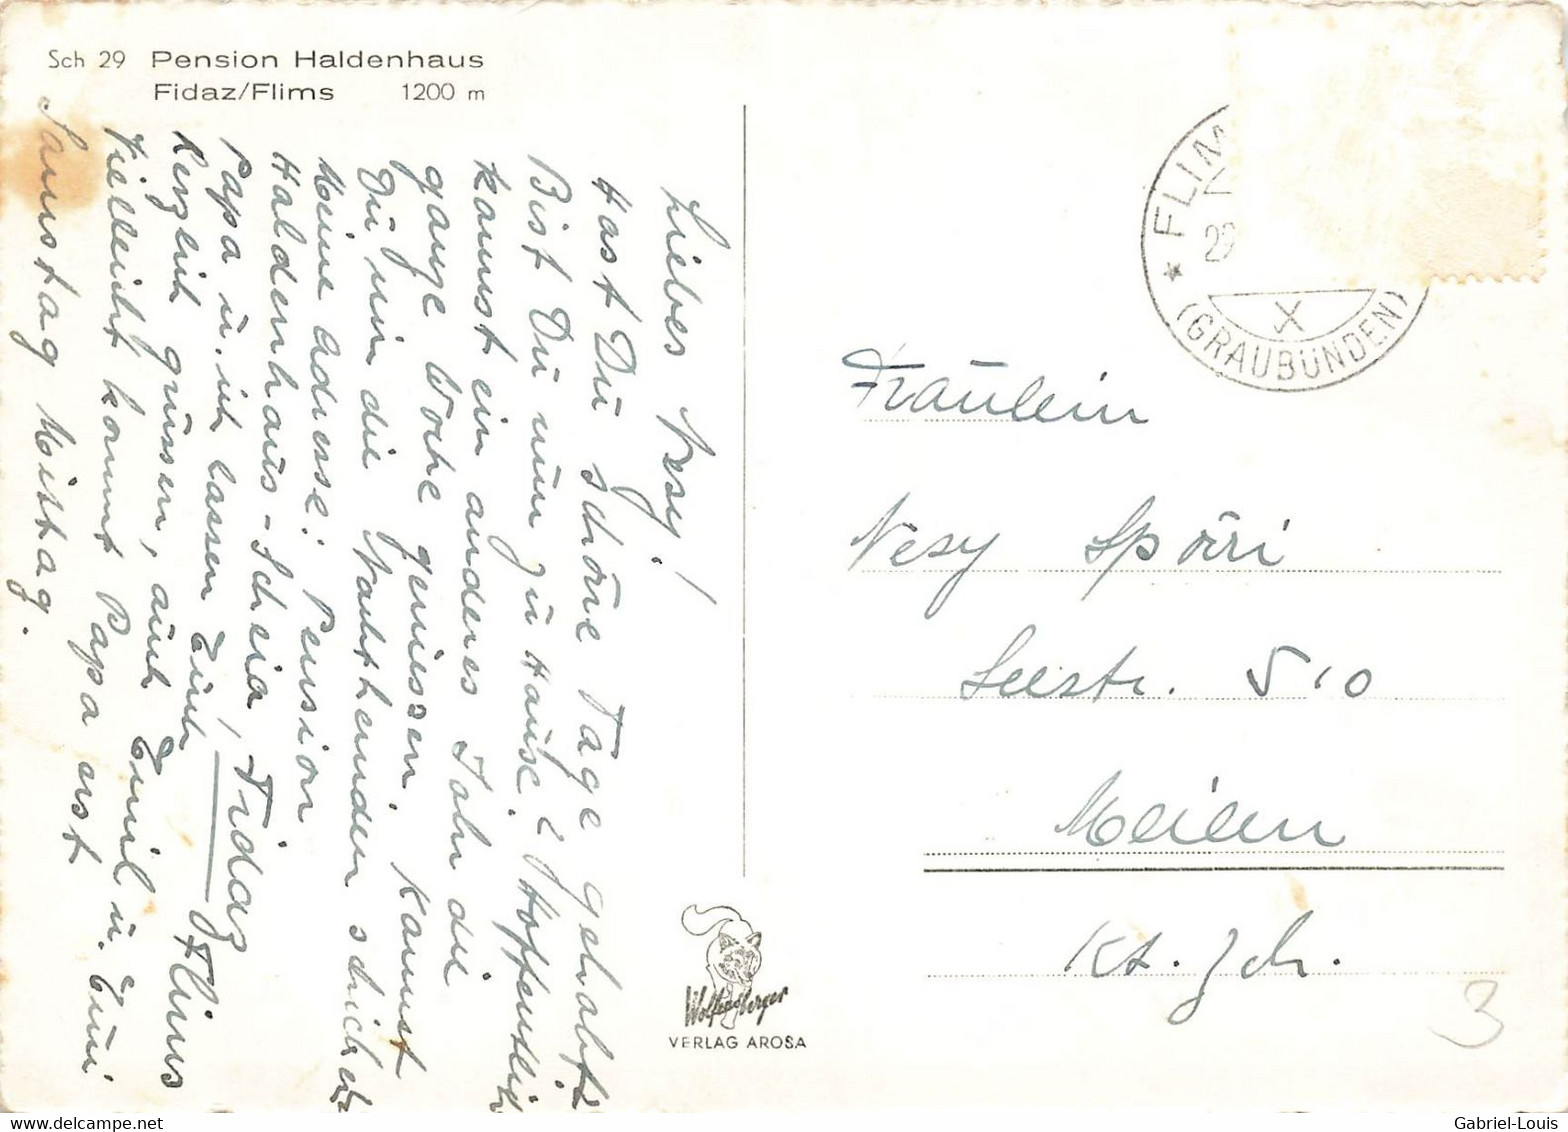 Sch 29 Pension Haldenhaus
Fidaz/Flims 1200 m
Liebes Nesy!
Hast Du schöne Tage gehabt?
Bist Du nun zu Hause? Hoffentlich
kannst ein anderes Jahr die
ganze Woche geniessen. Kannst
Du mir die Nachthemden schicken
Meine Adresse: Pension
Haldenhaus-Scheia, Fidaz
Papa u. ich lassen Euch / Flims
herzlich grüssen, auch Emil u. Emmi
Vielleicht kommt Papa erst
Samstag Mittag.
FLIM
29
(GRAUBÜNDEN)
Fräulein
Nesy Spörri
Seestr. 510
Meilen
Kt. Zch.
3
Wolfensberger
VERLAG AROSA
Gabriel-Louis